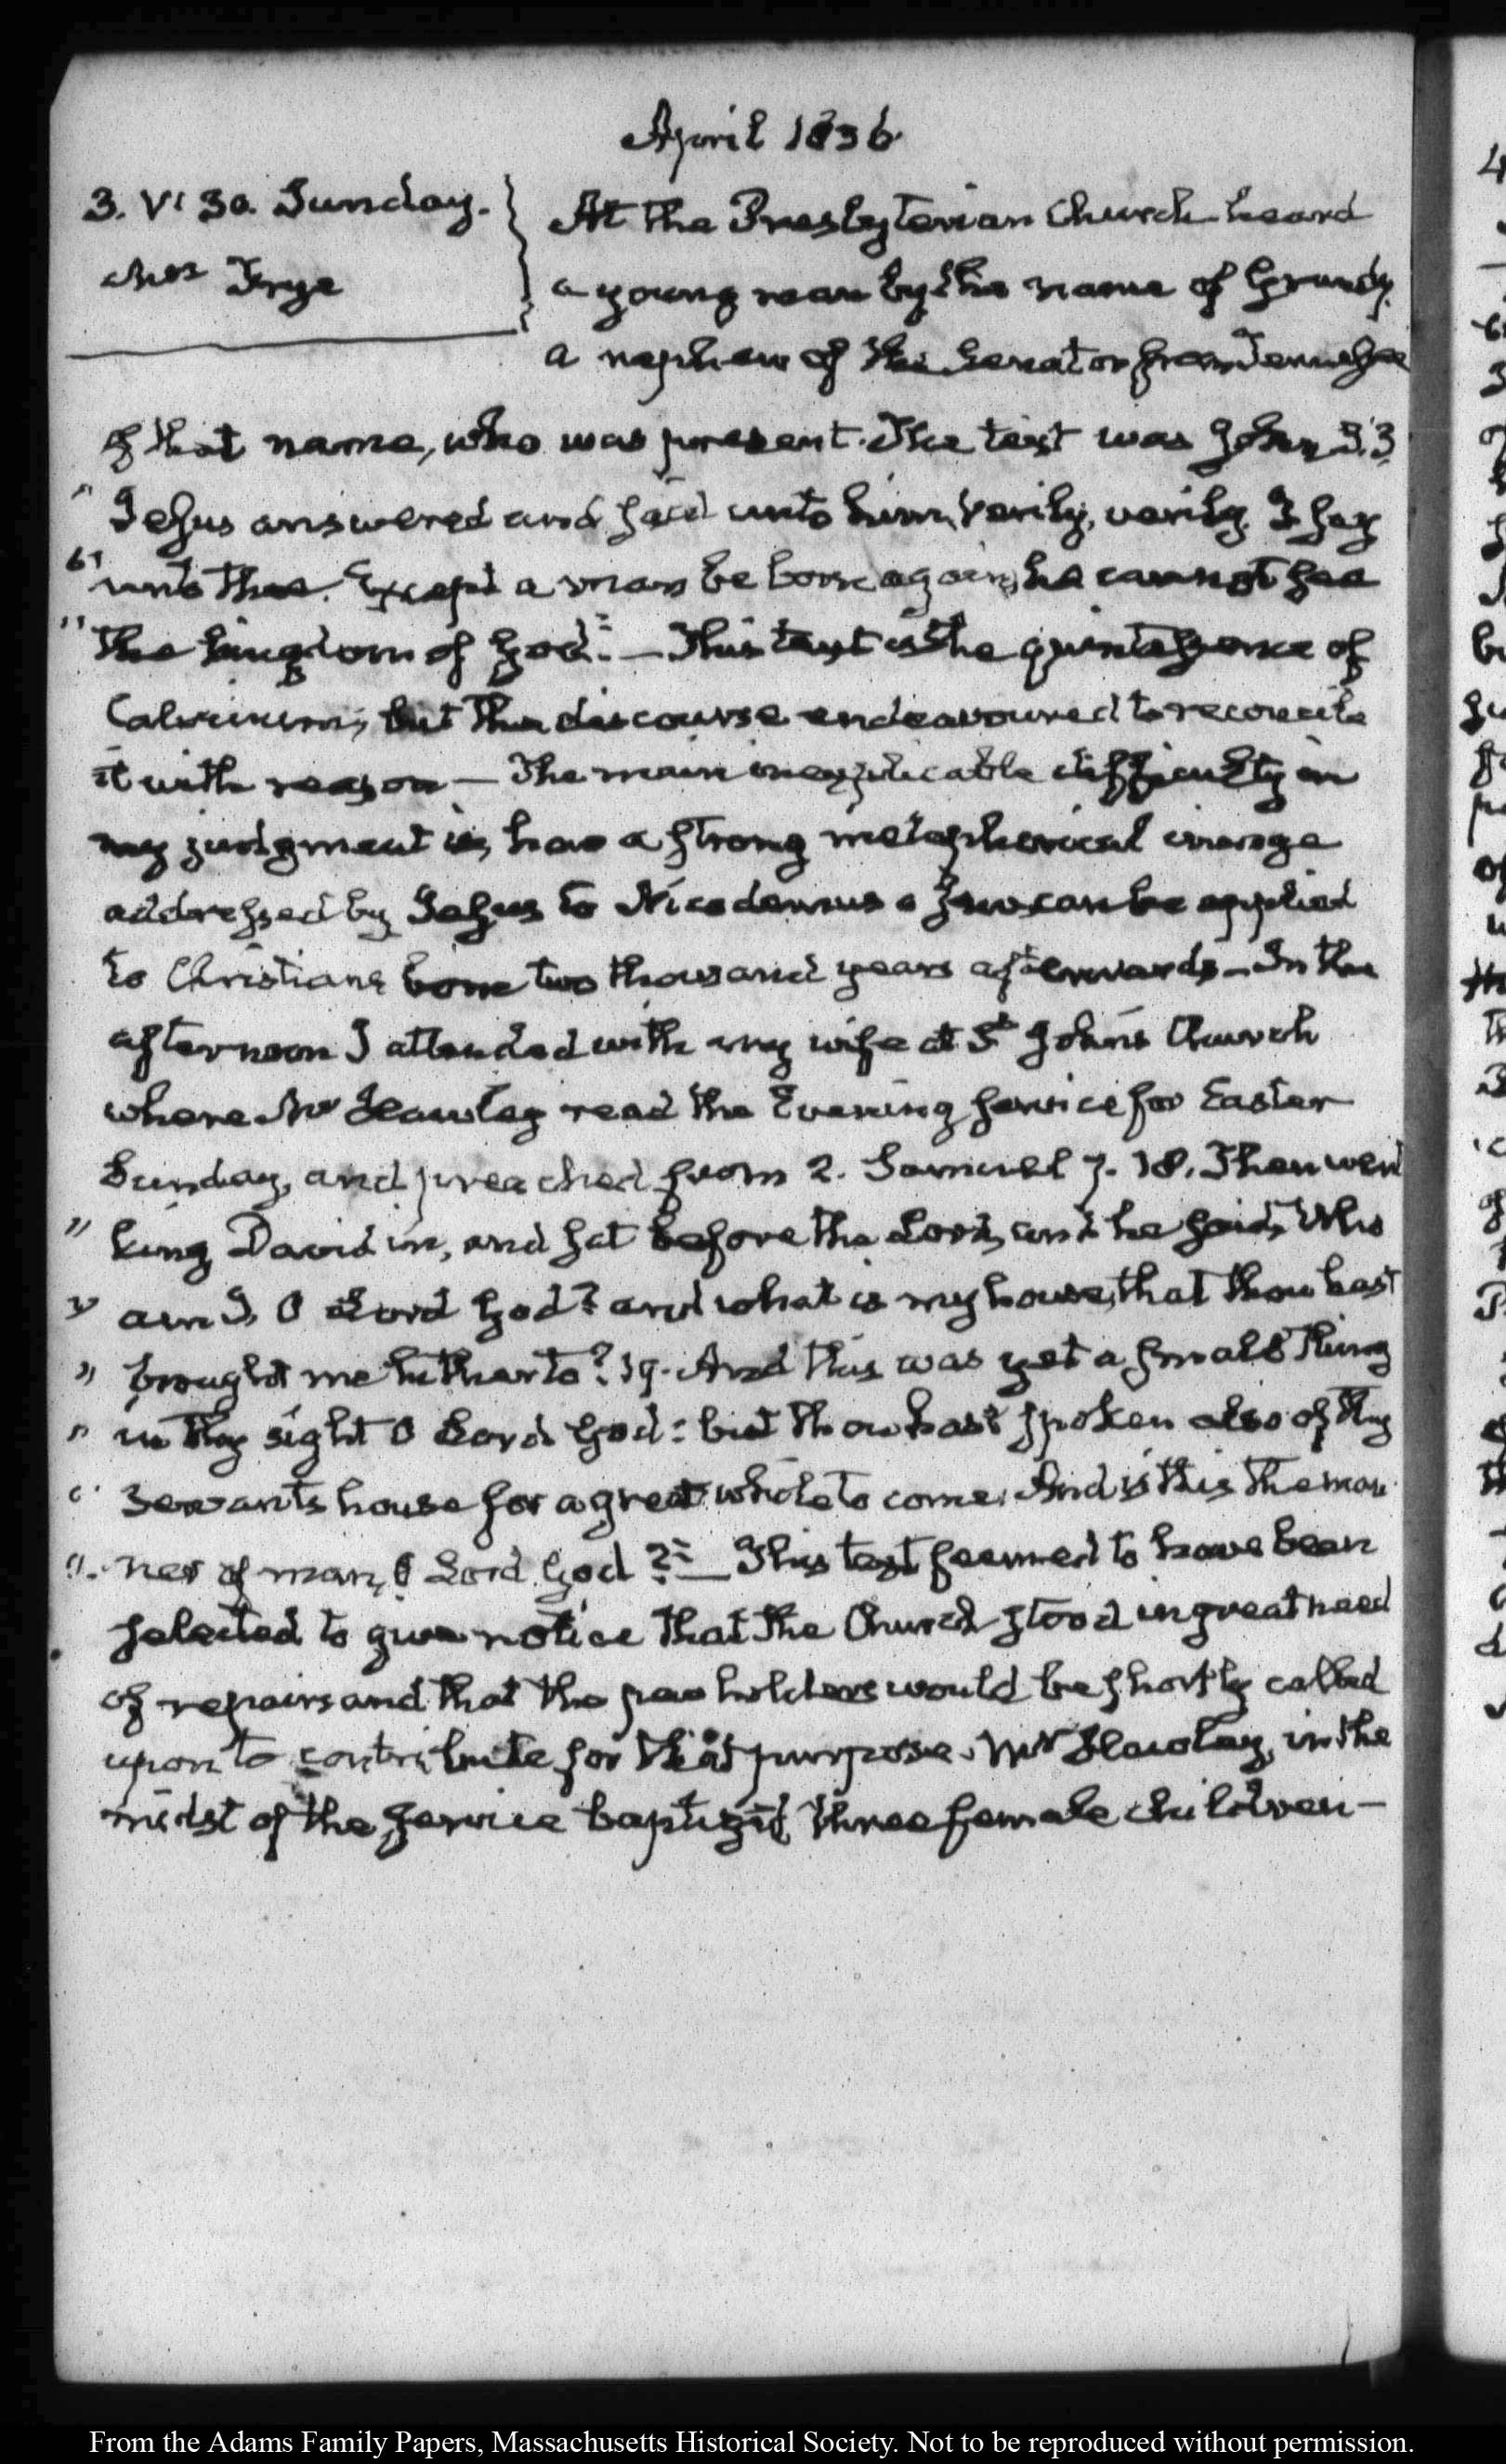 April 1836
3. VI 30. Sunday.
Mrs Frye
At the Presbyterian Church heard
a young man by the name of Grundy,
a nephew of the Senator from Tennessee
of that name, who was present. The text was John 3.3
" Jesus answered and said unto him, Verily, verily I say
" unto thee. Except a man be born again, he cannot see
" the kingdom of God." — This text is the quintessence of
Calvinism; but the discourse endeavoured to reconcile
it with reason — The main inexplicable difficulty in
my judgment is, how a strong metaphorical image
addressed by Jesus to Nicodemus a Jew can be applied
to Christians born two thousand years afterwards — In the
afternoon I attended with my wife at St. John's Church
where Mr Hawley read the Evening service for Easter
Sunday, and preached from 2. Samuel 7. 18. Then went
" king David in, and sat before the Lord, and he said, Who
" am I, O Lord God? and what is my house, that thou hast
" brought me hitherto? 19. And this was yet a small thing
" in thy sight O Lord God: but thou hast spoken also of thy
" Servants house for a great while to come. And is this the man
" ner of man, O Lord God?" — This text seemed to have been
selected to give notice that the Church stood in great need
of repairs and that the pew holders would be shortly called
upon to contribute for that purpose. Mr Hawley, in the
midst of the service baptized three female children —
From the Adams Family Papers, Massachusetts Historical Society. Not to be reproduced without permission.